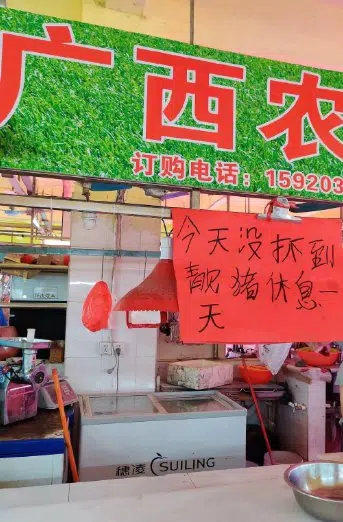 广西农
订购电话：159203
今天没抓到
靓猪休息一
天
穗凌 SUILING